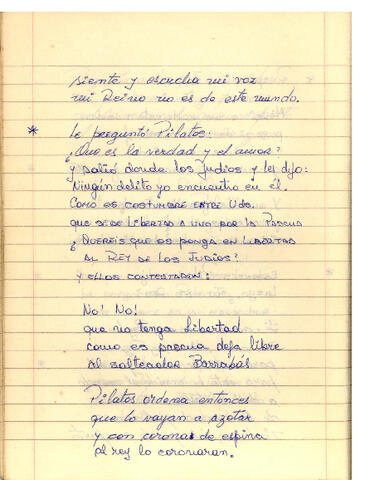 siente y escucha mi voz
mi Reino no es de este mundo.
* Le preguntó Pilatos:
¿Que es la verdad y el amor?
y salió donde los Judios y les dijo:
Ningún delito yo encuentro en él.
Como es costumbre entre Uds.
que se dé libertad a uno por la Pascua
¿Quereis que os ponga en libertad
al Rey de los Judios?
y ellos contestaron:
No! No!
que no tenga libertad
como es pascua deja libre
al salteador Barrabás
Pilatos ordena entonces
que lo vayan a azotar
y con corona de espina
al rey lo coronaran.